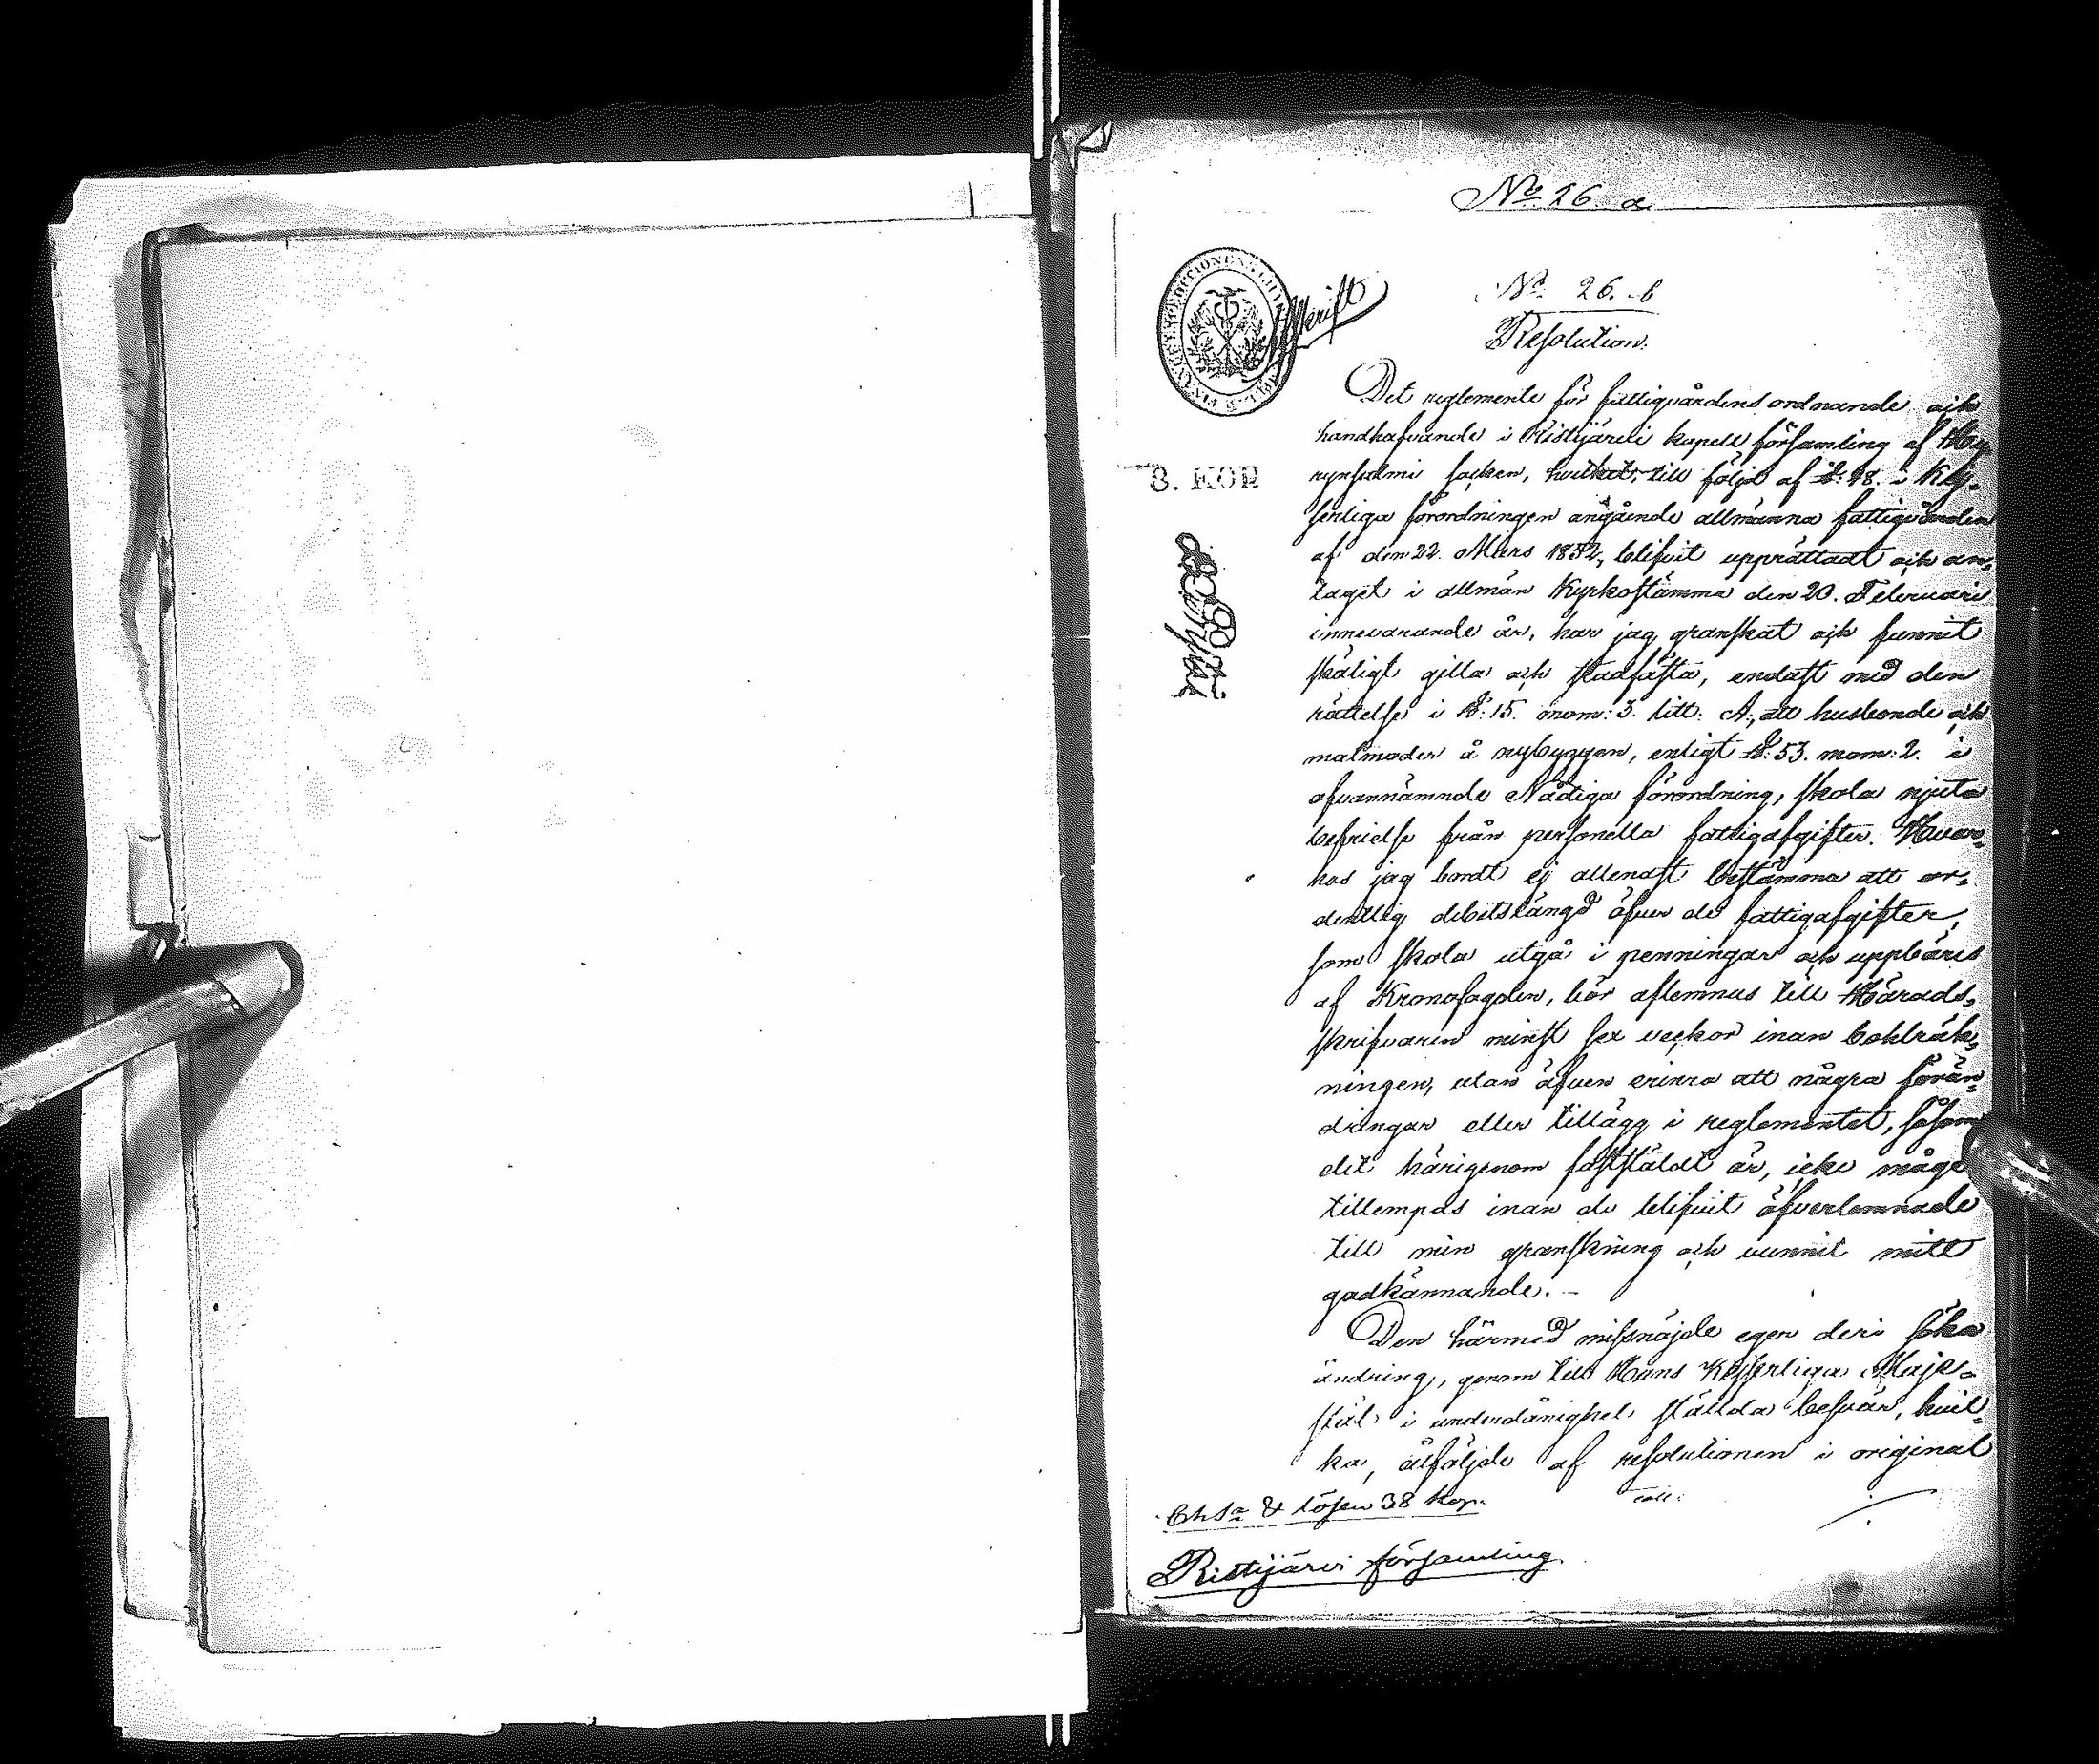 No 26 a
Afskrift
No 26. b
Resolution.
Det reglemente för fattigvårdens ordnande och
handhafvande i Ristijärvi kapell församling af Hy
rynsalmi socken, hvilket, till följd af §: 48. i Kej-
serliga förordningen angående allmänna fattigvården
af den 22. Mars 1852, blifvit upprättadt och an-
taget i allmän Kyrkostämma den 20. Februari
innevarande år, har jag granskat och funnit
skäligt gilla och stadfästa, endast med den
rättelse i §: 15. mom: 3. litt: A, att husbonde och
matmoder å nybyggen, enligt §: 53. mom: 2. i
ofvannämnde Nådiga förordning, skola njuta
befrielse från personella fattigafgifter. Hvar-
hos jag bordt ej allenast bestämma att or-
dentlig debitslängd öfver de fattigafgifter,
som skola utgå i penningar och uppbäras
af Kronofogden, bör aflemnas till Härads-
skrifvaren minst sex veckor inan bokläk-
ningen, utan äfven erinra att några förän-
dringar eller tillägg i reglementet, såsom
det härigenom fastställdt är, icke måge
tillempas inan de blifvit öfverlemnade
till min granskning och vunnit mitt
godkännande. -
Den härmed missnöjde eger deri söka
ändring, genom till Hans Kejserliga Maje-
stät i underdånighet ställda besvär, hvil-
ka, åtföljde af resolutionen i original
3. KOP
Chsa & lösen 38 kop. coll:
Ristijärvi församling.